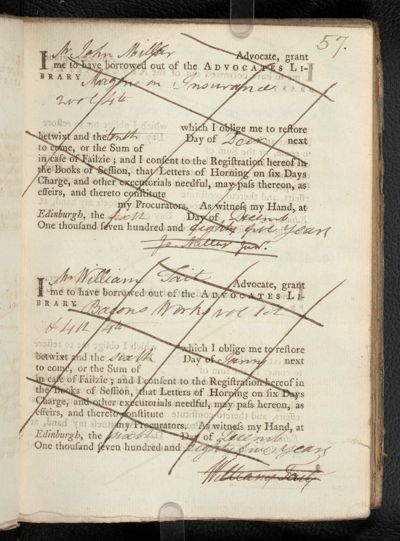 57.
I Mr John Miller Advocate, grant
me to have borrowed out of the ADVOCATES LI-
BRARY Magens on Insurance
2 vol 4to
which I oblige me to reſtore
betwixt and the tenth Day of Decr. next
to come, or the Sum of
in caſe of Failzie; and I conſent to the Regiſtration hereof in
the Books of Seſſion, that Letters of Horning on ſix Days
Charge, and other executorials needful, may paſs thereon, as
effeirs, and thereto conſtitute
my Procurators. As witneſs my Hand, at
Edinburgh, the Day of Decemb
One thouſand ſeven hundred and eighty five Years
Jo. Miller Junr.
I Mr William Tait Advocate, grant
me to have borrowed out of the ADVOCATES LI-
BRARY Bacons Works vol 1st
& 4th 4to
which I oblige me to reſtore
betwixt and the sixth Day of next
to come, or the Sum of
in caſe of Failzie; and I conſent to the Regiſtration hereof in
the Books of Seſſion, that Letters of Horning on ſix Days
Charge, and other executorials needful, may paſs hereon, as
effeirs, and thereto conſtitute
my Procurators. As witneſs my Hand, at
Edinburgh, the sixth Day of Decemb
One thouſand ſeven hundred and eighty five Years
William Tait